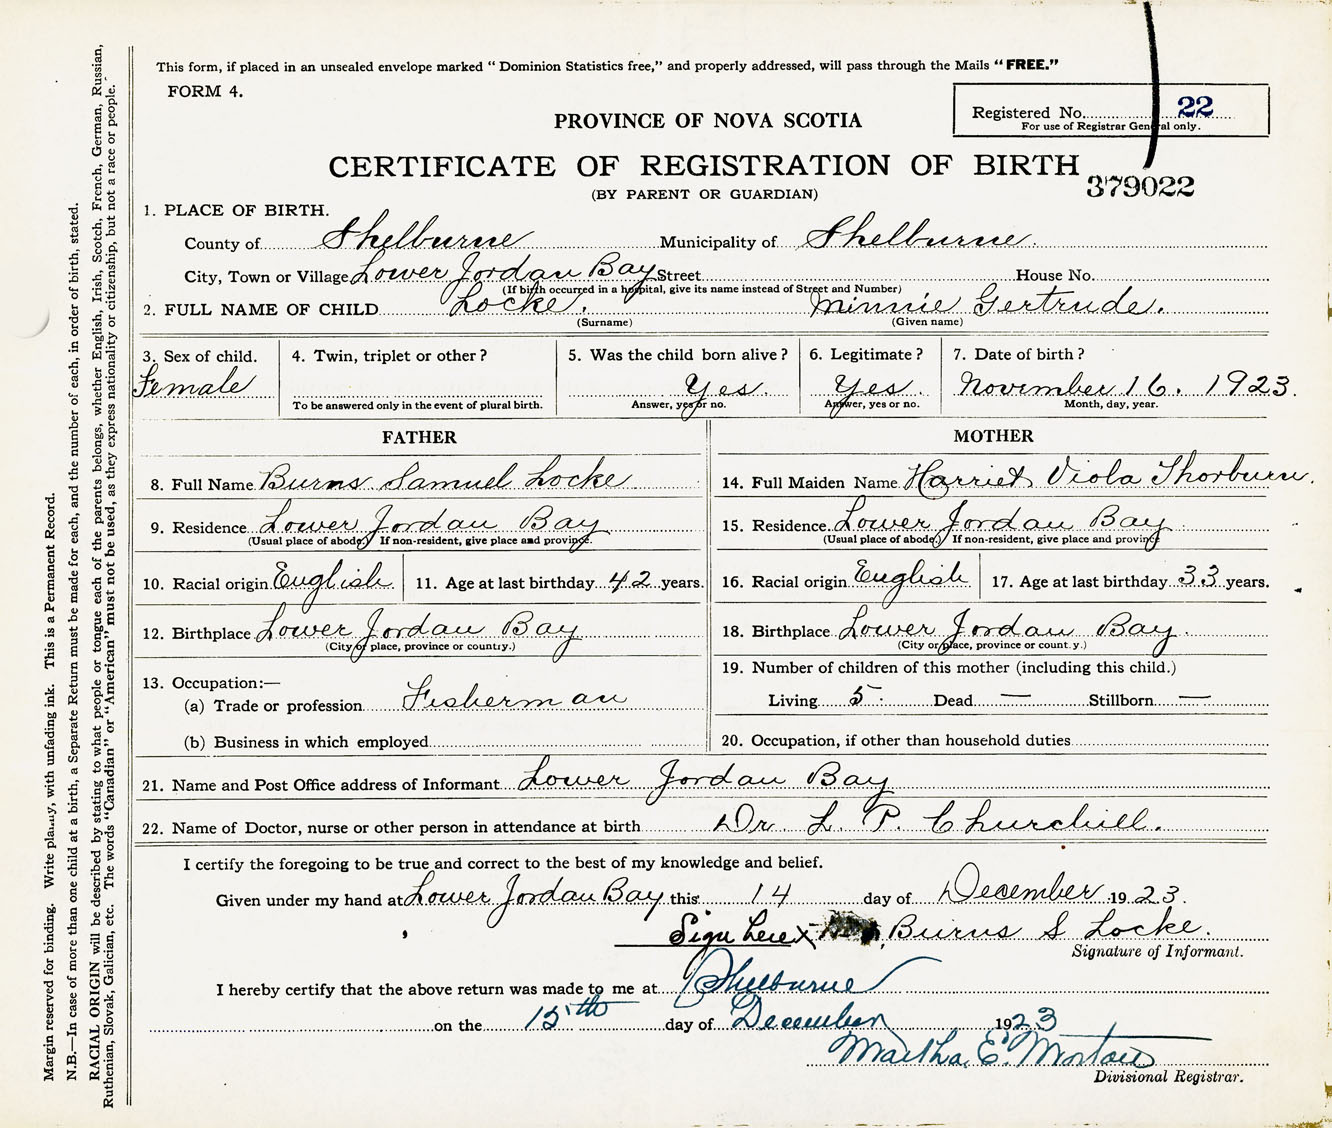 This form, if placed in an unsealed envelope marked "Dominion Statistics free," and properly addressed, will pass through the Mails "FREE."
FORM 4.
Registered No. 22
For use of Registrar General only.
PROVINCE OF NOVA SCOTIA
CERTIFICATE OF REGISTRATION OF BIRTH
379022
(BY PARENT OR GUARDIAN)
1. PLACE OF BIRTH.
County of Shelburne Municipality of Shelburne.
City, Town or Village Lower Jordan Bay Street House No.
(If birth occurred in a hospital, give its name instead of Street and Number)
2. FULL NAME OF CHILD Locke. Minnie Gertrude.
(Surname) (Given name)
3. Sex of child. 4. Twin, triplet or other? 5. Was the child born alive? 6. Legitimate? 7. Date of birth?
Female Yes. Yes. November 16. 1923.
To be answered only in the event of plural birth. Answer, yes or no. Answer, yes or no. Month, day, year.
FATHER
8. Full Name Burns Samuel Locke
9. Residence Lower Jordan Bay
(Usual place of abode.) If non-resident, give place and province.
10. Racial origin English 11. Age at last birthday 42 years.
12. Birthplace Lower Jordan Bay
(City or place, province or country.)
13. Occupation:—
(a) Trade or profession Fisherman
(b) Business in which employed
MOTHER
14. Full Maiden Name Harriet Viola Thorburn.
15. Residence Lower Jordan Bay
(Usual place of abode.) If non-resident, give place and province
16. Racial origin English 17. Age at last birthday 33 years.
18. Birthplace Lower Jordan Bay.
(City or place, province or country.)
19. Number of children of this mother (including this child.)
Living 5. Dead — Stillborn —
20. Occupation, if other than household duties
21. Name and Post Office address of Informant Lower Jordan Bay
22. Name of Doctor, nurse or other person in attendance at birth Dr L. P. Churchill.
I certify the foregoing to be true and correct to the best of my knowledge and belief.
Given under my hand at Lower Jordan Bay this 14 day of December 1923.
Sign here X Burns S Locke.
Signature of Informant.
I hereby certify that the above return was made to me at Shelburne
on the 15th day of December 1923
Martha E. Morton
Divisional Registrar.
Margin reserved for binding. Write plainly, with unfading ink. This is a Permanent Record.
N.B.—In case of more than one child at a birth, a Separate Return must be made for each, and the number of each, in order of birth, stated.
RACIAL ORIGIN will be described by stating to what people or tongue each of the parents belongs, whether English, Irish, Scotch, French, German, Russian,
Ruthenian, Slovak, Galician, etc. The words "Canadian" or "American" must not be used, as they express nationality or citizenship, but not a race or people.